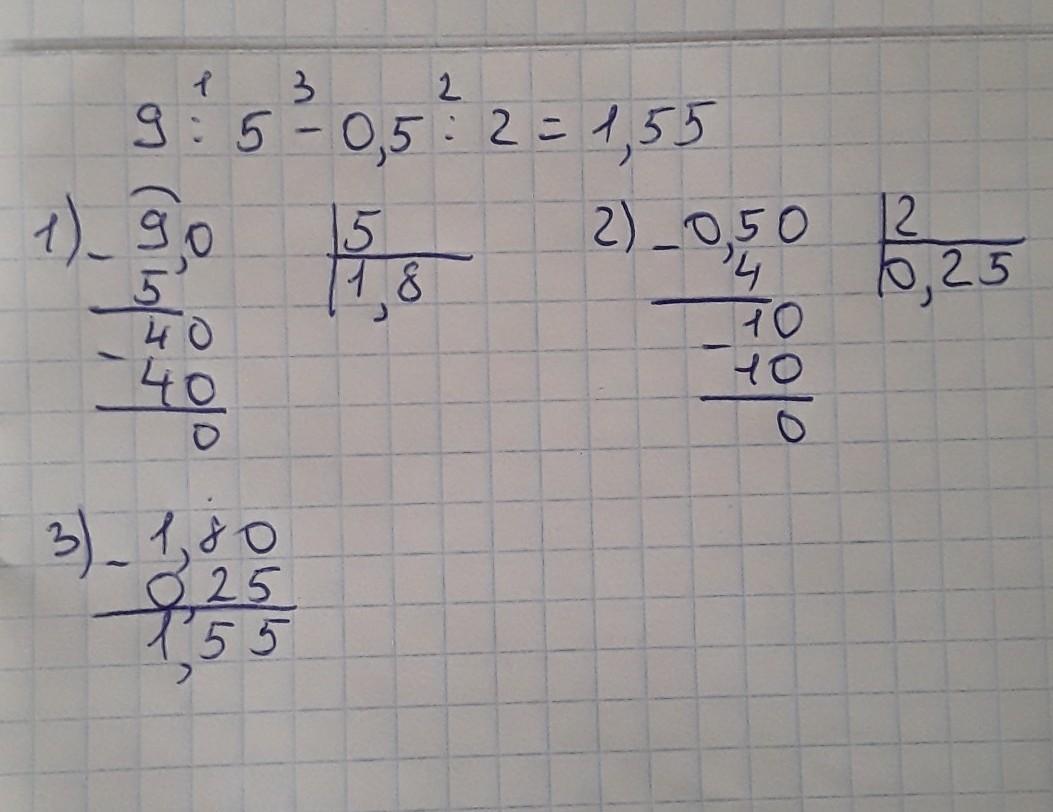 1 3 2
9 : 5 - 0,5 : 2 = 1,55
1) - 9,0 | 5
5 | 1,8
- 40
40
0
2) - 0,50 | 2
4 | 0,25
- 10
10
0
3) - 1,80
0,25
1,55